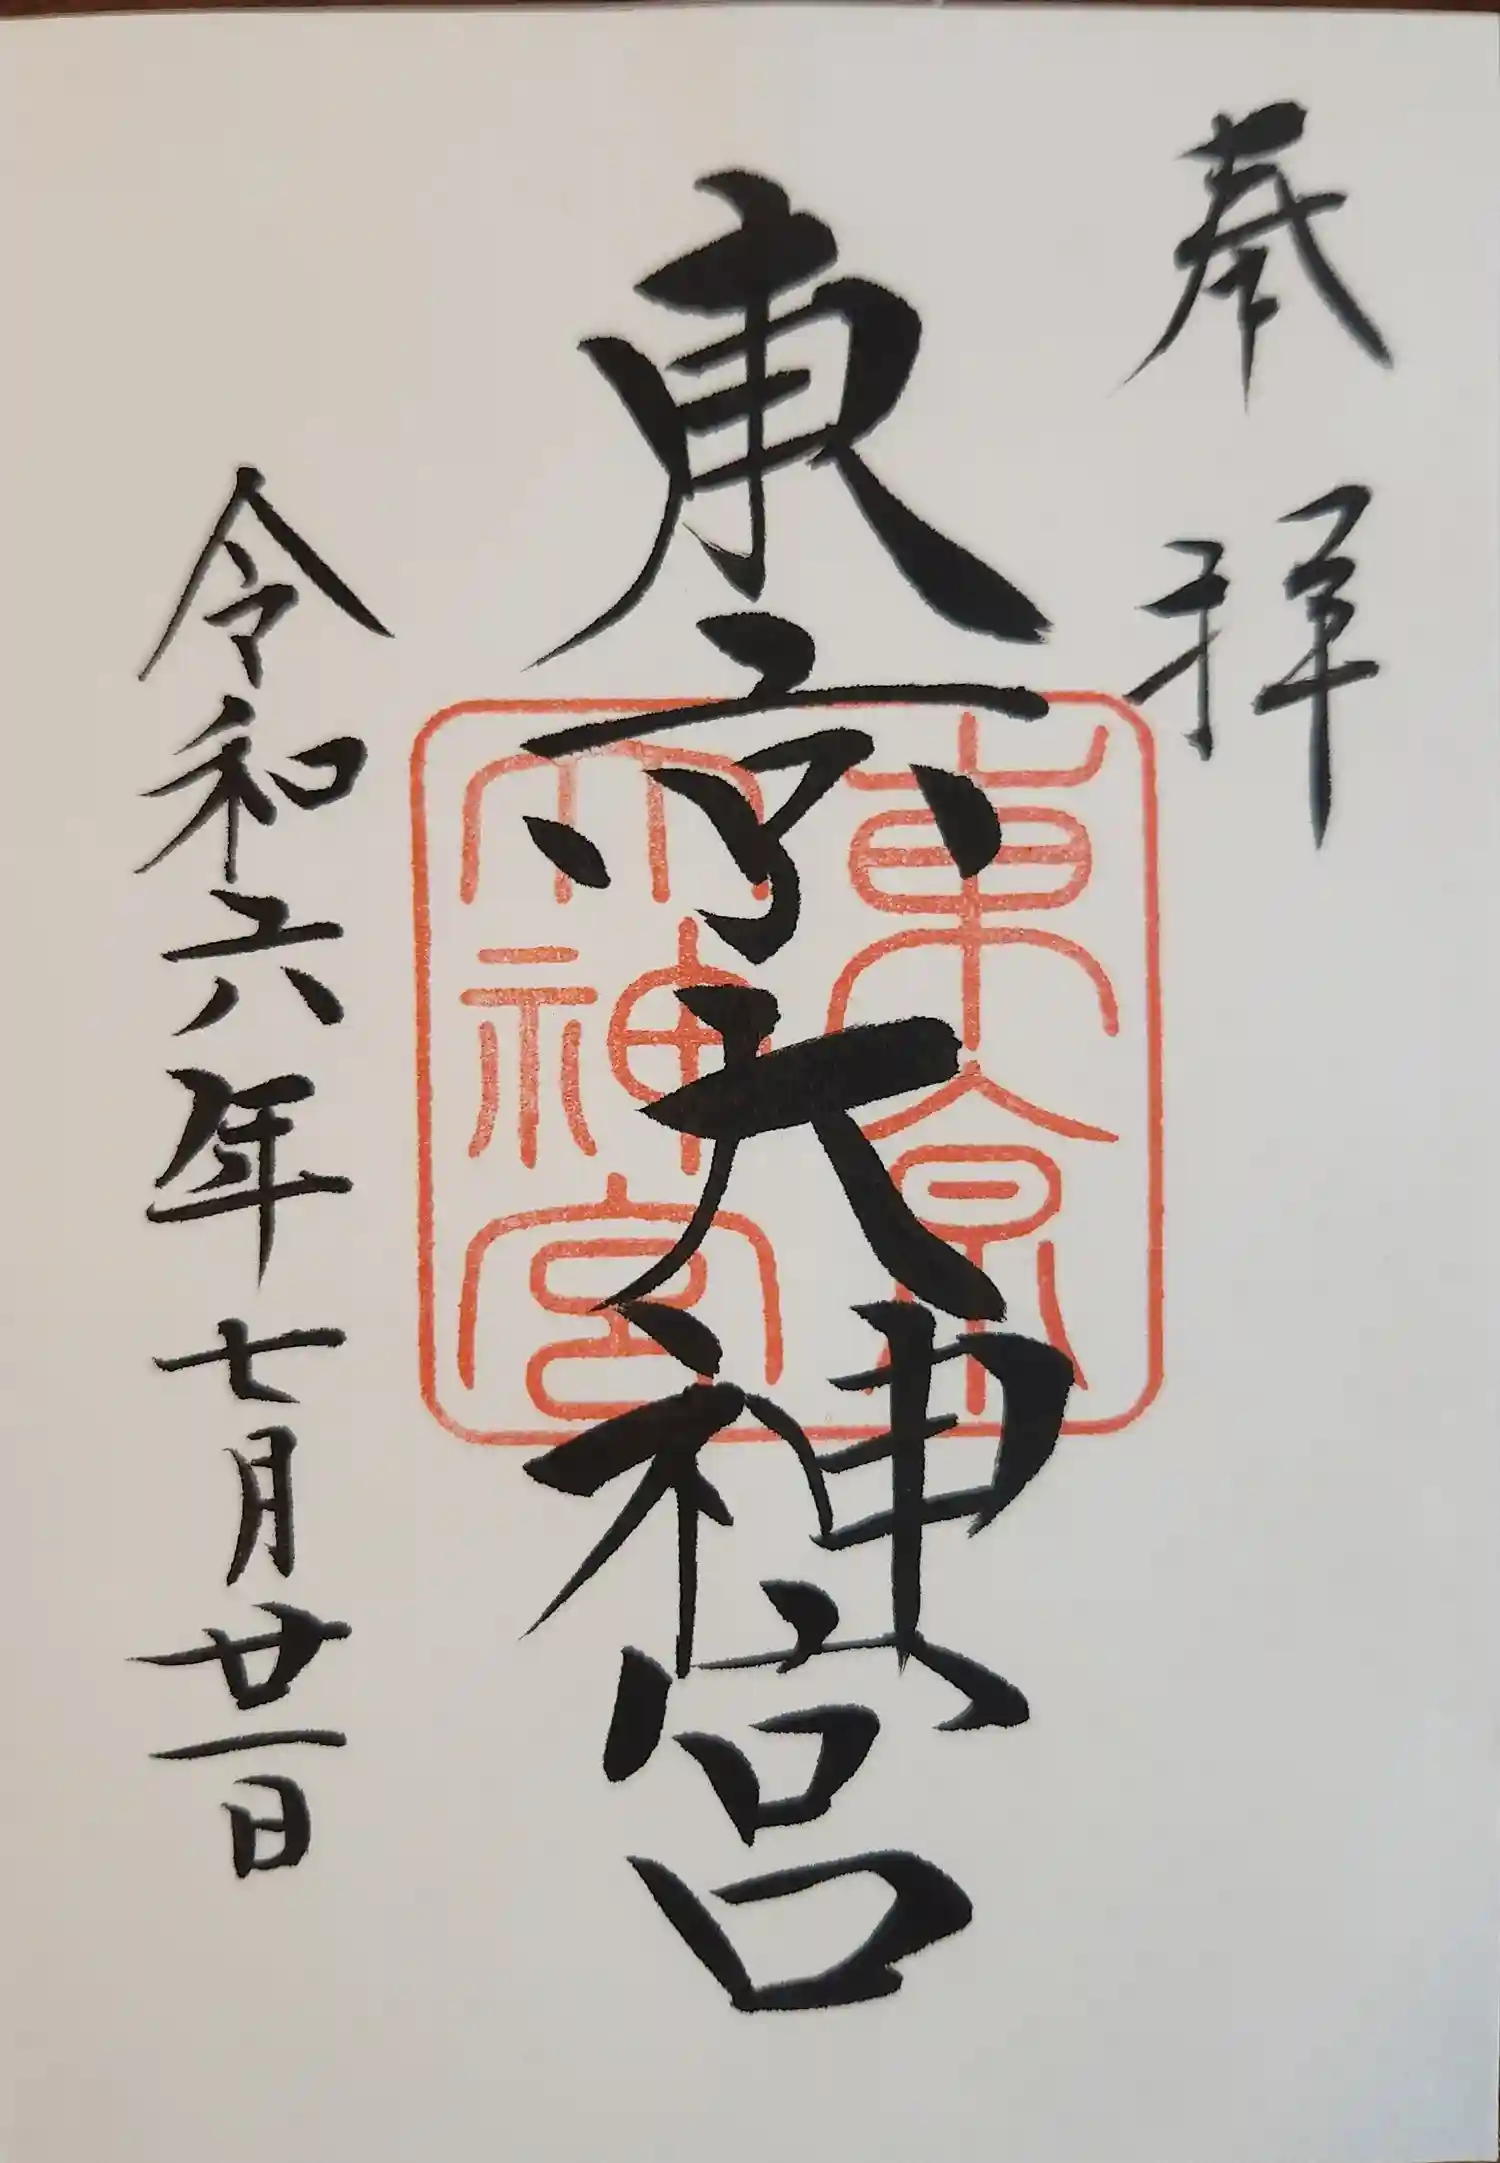 奉拝
東京大神宮
東京
大神宮
令和六年七月廿一日